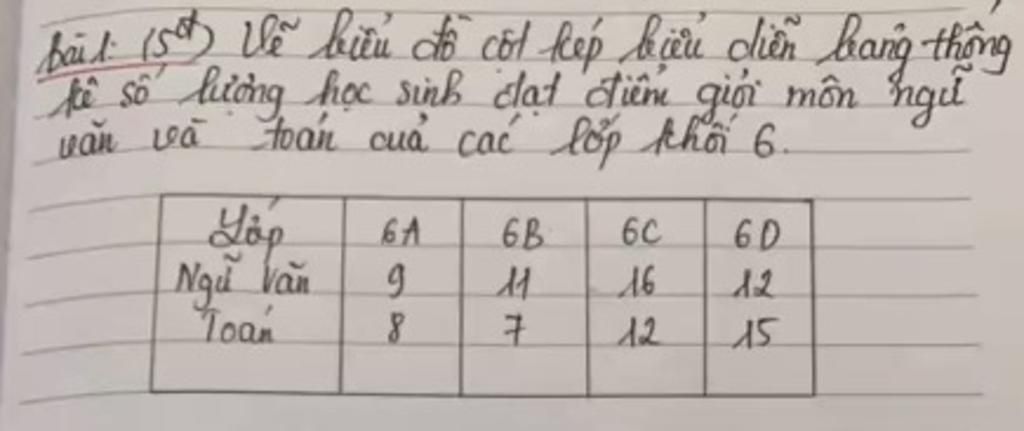 Bài 1: (5đ) Vẽ biểu đồ cột kép biểu diễn bảng thống
kê số lượng học sinh đạt điểm giỏi môn ngữ
văn và toán của các lớp khối 6.
Lớp 6A 6B 6C 6D
Ngữ Văn 9 11 16 12
Toán 8 7 12 15